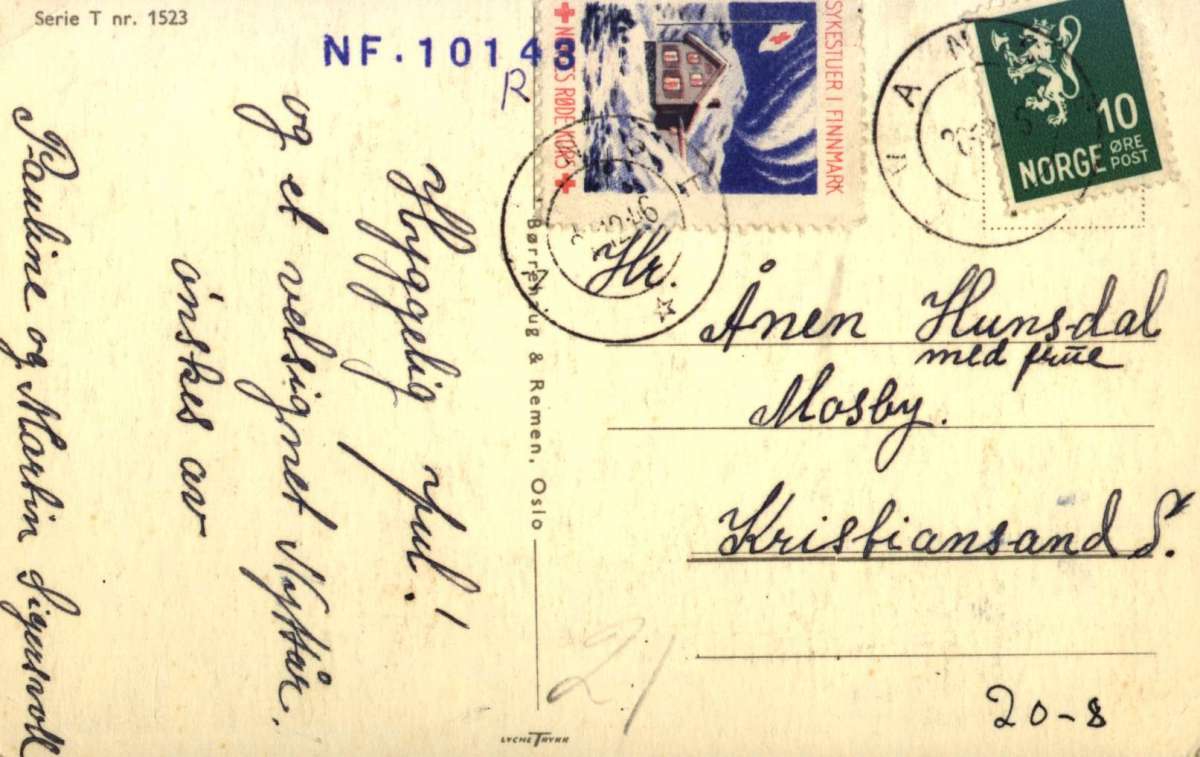 Serie T nr. 1523
NF.10143
R
SYKESTUER I FINNMARK
RØDE KORS
NORGE 10 ØRE
POST
Hyggelig jul!
og et velsignet Nyttår.
ønskes av
Pauline og Martin Sigersvoll
Børrehaug & Remen, Oslo
Hr.
Ånen Hunsdal
med frue
Mosby.
Kristiansand S.
21
20-8
LYCHE TRYKK